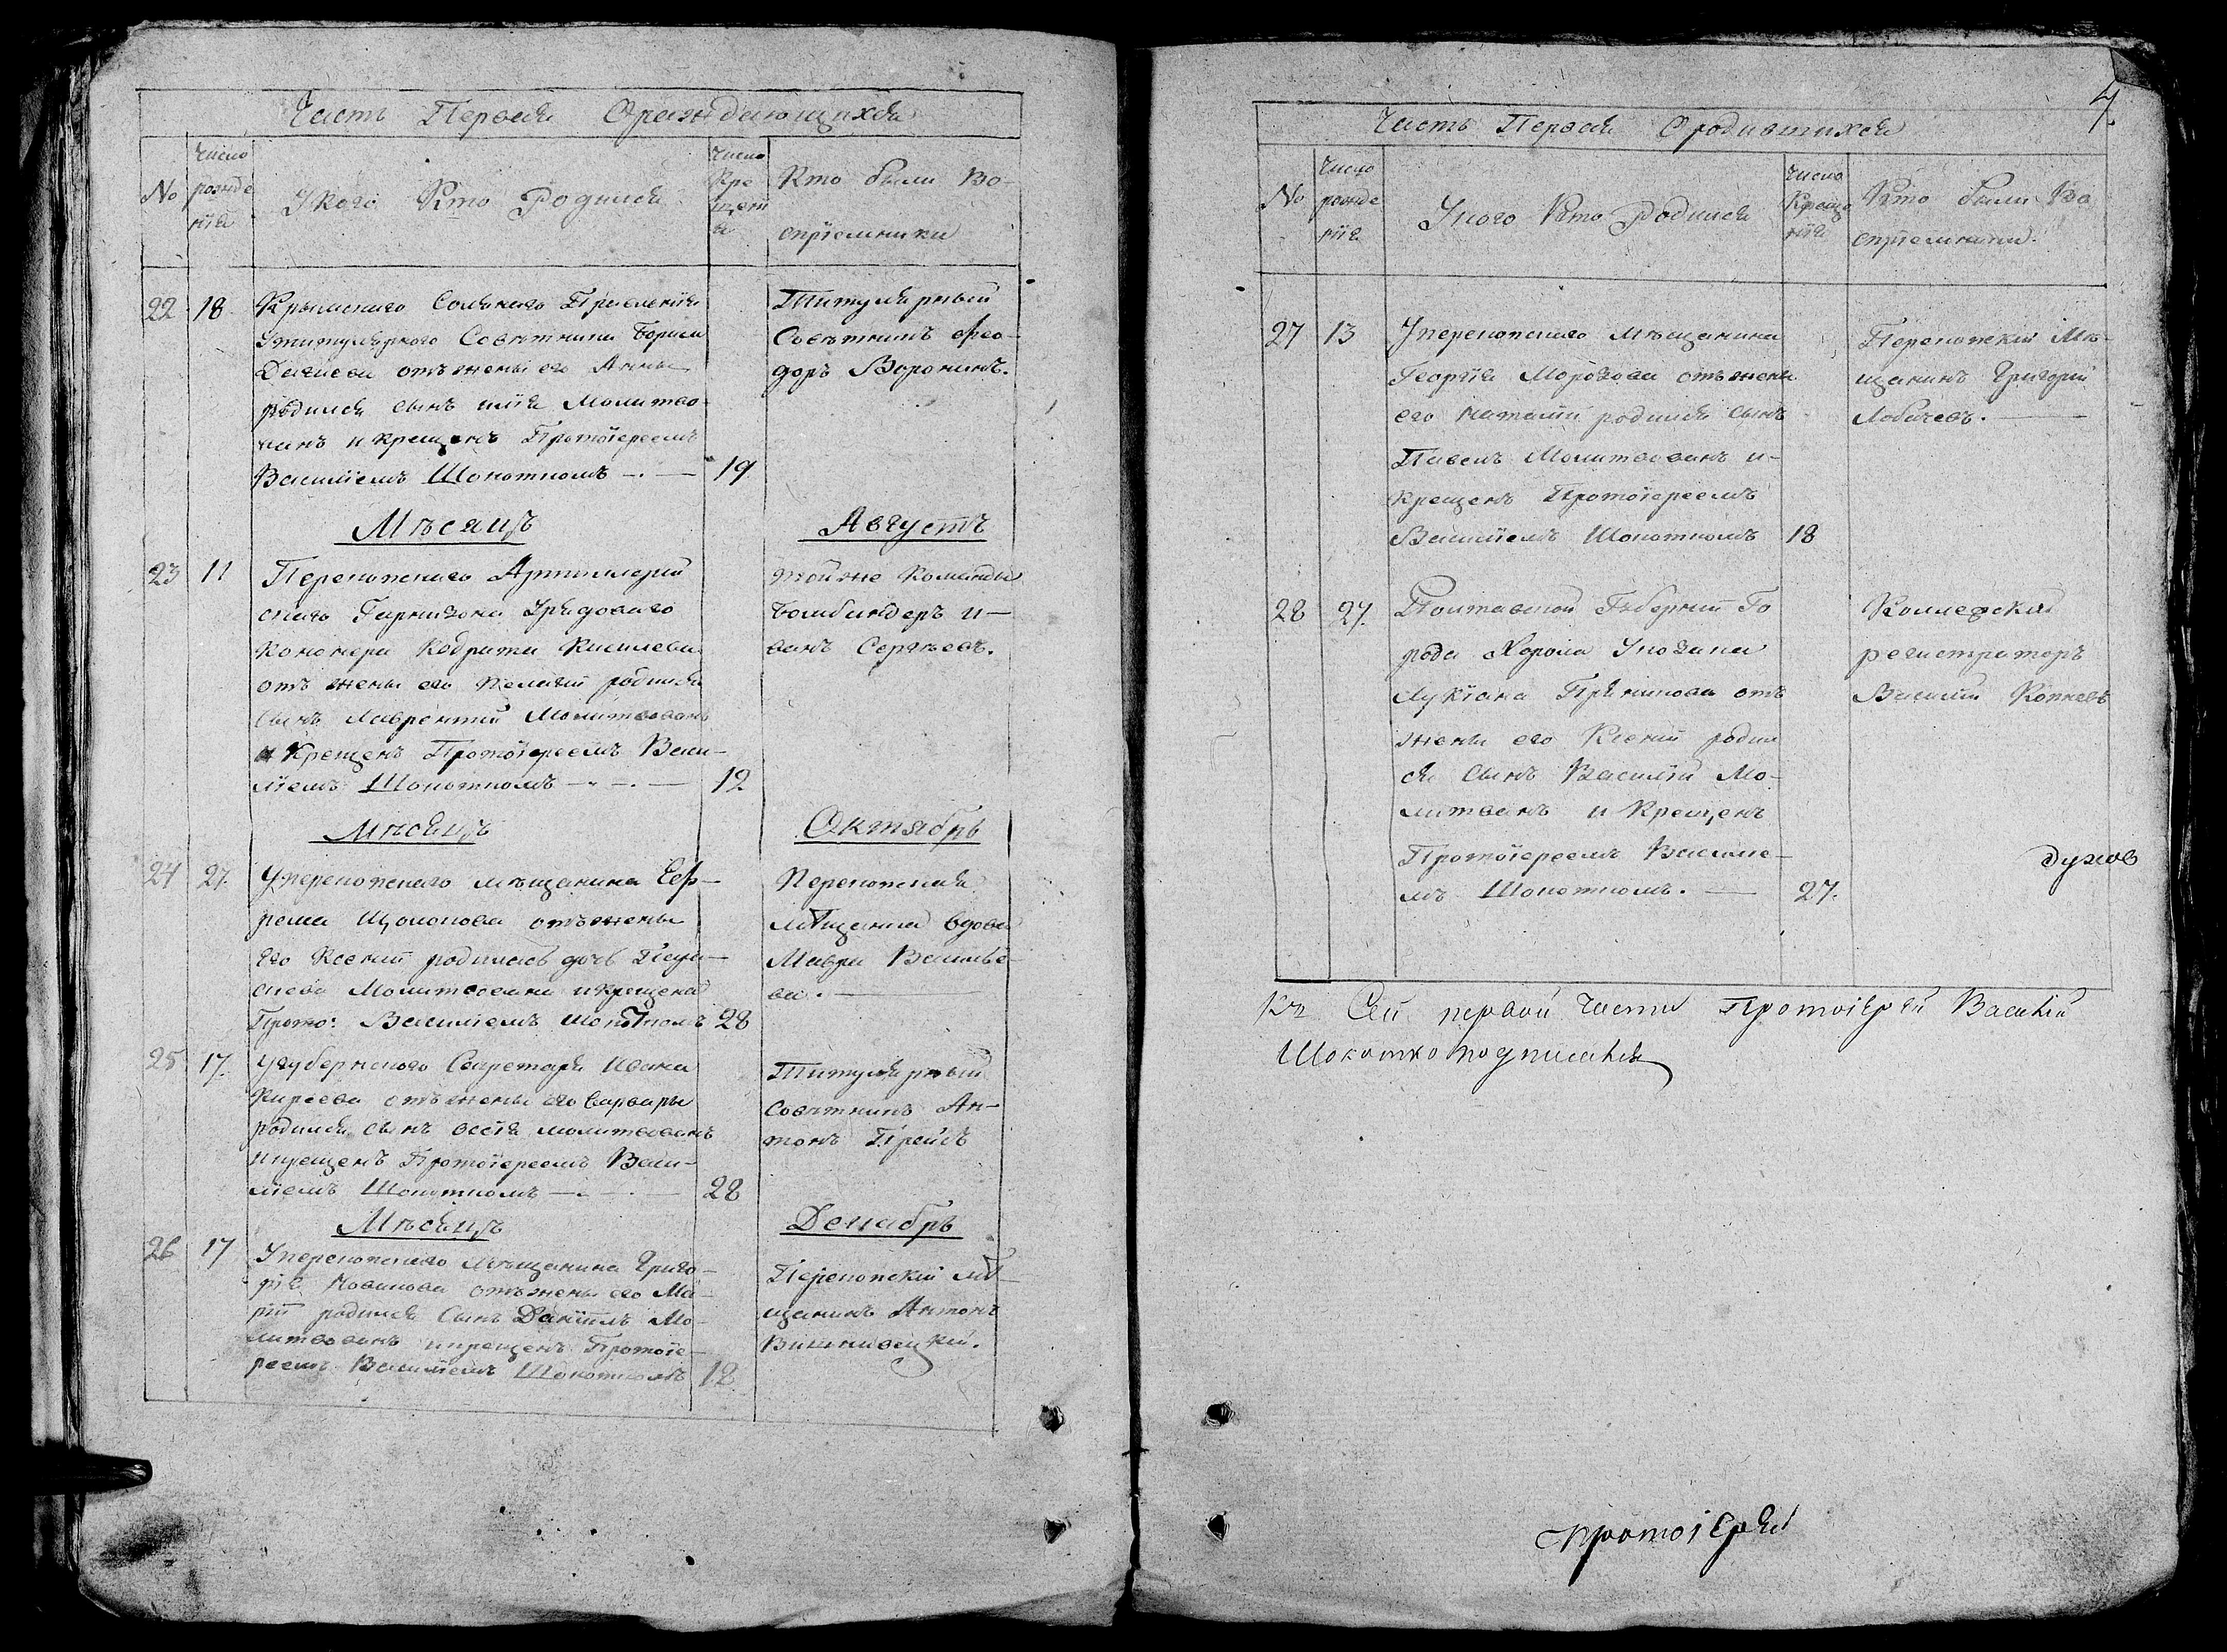 Часть Первая О рождающихся
№
число рожденія
У кого Кто Родился
число Крещенія
Кто были Во-
спріемники
22 18 Крымскаго Солянаго Правленія
У титулярного Совѣтника Бориса
отъ жены его Анны
родился сынъ Илія Молитво-
ванъ и крещенъ Протоіереемъ
Василіемъ Шокоткомъ 19
Титулярный
Совѣтникъ Фео-
доръ Воронинъ.
Мѣсяцъ Августъ
23 11 Перекопскаго Артиллерій
скаго Гарнизона Урядоваго
Канонера Кодрата Киселева
отъ жены его Пелагіи родился
сынъ Лаврентій Молитвованъ
и Крещенъ Протоіереемъ Васи-
ліемъ Шокоткомъ 12
той же Команды
Бомбандеръ И-
ванъ Сергѣевъ.
Мѣсяцъ Октябрь
24 27. У перекопскаго мѣщанина Еф-
рема Щолокова отъ жены
его Ксеніи родилась дочь
Молитвована и крещена
Прото: Василіемъ Шокоткомъ 28
Перекопская
мѣщанка вдова
Мавра Василье-
ва.
25 17. У губернскаго Секретаря Ивана
Киреева отъ жены его Варвары
родился сынъ молитвованъ
и крещенъ Протоіереемъ Васи-
ліемъ Шокоткомъ 28
Титулярный
Совѣтникъ Ан-
тонъ Прейсъ
Мѣсяцъ Декабрь
26 17 У перекопскаго мѣщанина Григо-
рія Новикова отъ жены его Ма-
ріи родился Сынъ Даніилъ Мо-
литвованъ и крещенъ Протоіе-
реемъ Василіемъ Шокоткомъ 18
Перекопскій мѣ-
щанинъ Антонъ
Вишнивецкій.
7
Часть Первая О родившихся
№
Число рожденія
У кого Кто Родился
число Крещенія
Кто были Во
спріемники.
27 13 У перекопскаго мѣщанина
Георгія Морозова отъ жены
его Наталіи родился сынъ
Павелъ Молитвованъ и
крещенъ Протоіереемъ
Василіемъ Шокоткомъ 18
Перекопскій Мѣ-
щанинъ Григорій
Лобачевъ.
28 27. Полтавской Губерніи Го
рода Хорола У козака
Лукіана отъ
жены его Ксеніи родил
ся Сынъ Василій Мо-
литванъ и Крещенъ
Протоіереемъ Василіе-
мъ Шокоткомъ. 27.
Коллежскій
регистраторъ
Василій Копневъ
духов
Къ Сей первой Части Протоіерей Василій
Шокотко подписался
протоіерей